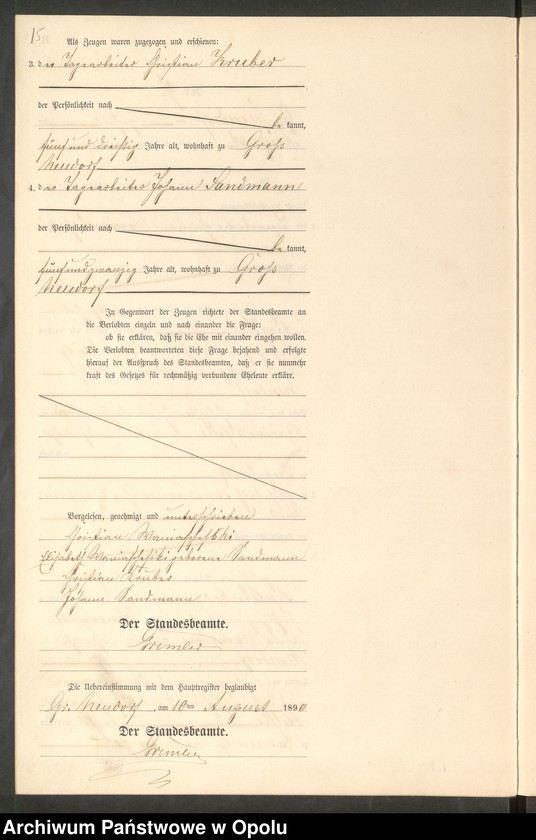 15
Als Zeugen waren zugezogen und erschienen:
3. der Tagearbeiter Christian Kruber
der Persönlichkeit nach
be kannt,
fünf und dreißig Jahre alt, wohnhaft zu Groß
Neudorf
4. der Tagearbeiter Johann Sandmann
der Persönlichkeit nach
be kannt,
fünfundzwanzig Jahre alt, wohnhaft zu Groß
Neudorf
In Gegenwart der Zeugen richtete der Standesbeamte an
die Verlobten einzeln und nach einander die Frage:
ob sie erklären, daß sie die Ehe mit einander eingehen wollen.
Die Verlobten beantworteten diese Frage bejahend und erfolgte
hierauf der Ausspruch des Standesbeamten, daß er sie nunmehr
kraft des Gesetzes für rechtmäßig verbundene Eheleute erkläre.
Vorgelesen, genehmigt und unterschrieben
Christian
Elisabeth geborene Sandmann
Christian Kruber
Johann Sandmann
Der Standesbeamte.
Gremler
Die Uebereinstimmung mit dem Hauptregister beglaubigt
Gr. Neudorf, am 10ten August 1890
Der Standesbeamte.
Gremler
Archiwum Państwowe w Opolu